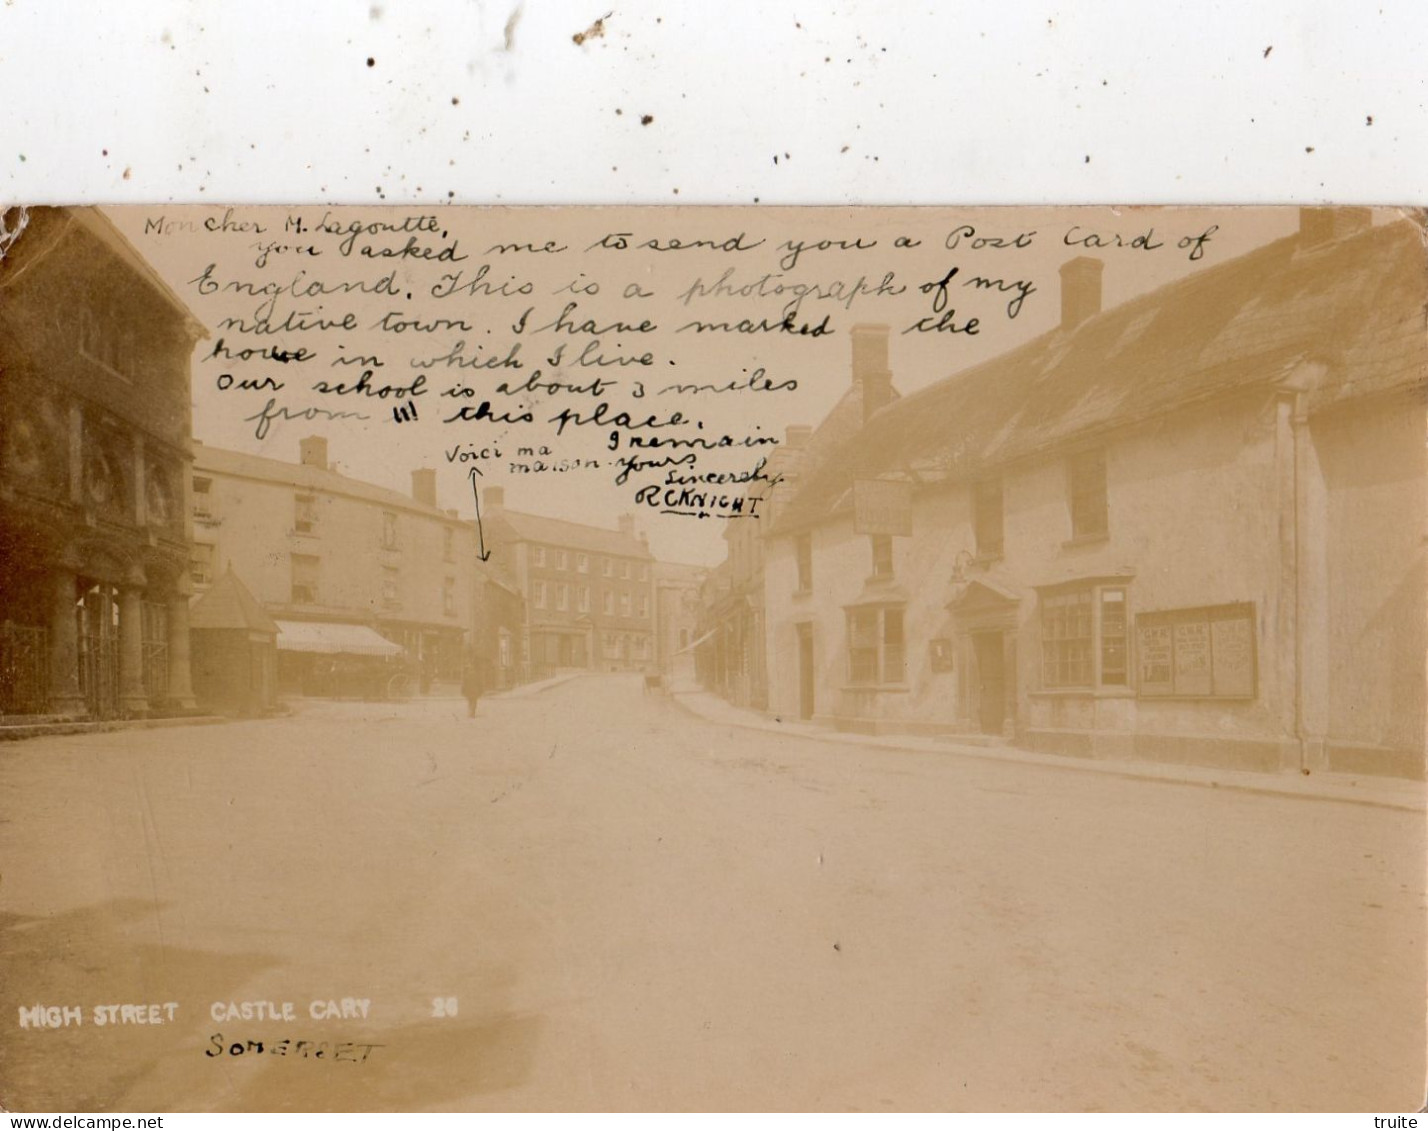 Mon cher M. Lagoutte,
you asked me to send you a Post Card of
England. This is a photograph of my
native town. I have marked the
house in which I live.
Our school is about 3 miles
from this place.
I remain
yours
sincerely
R C KNIGHT
Voici ma
maison
HIGH STREET CASTLE CARY 26
SOMERSET
www.delcampe.net
truite